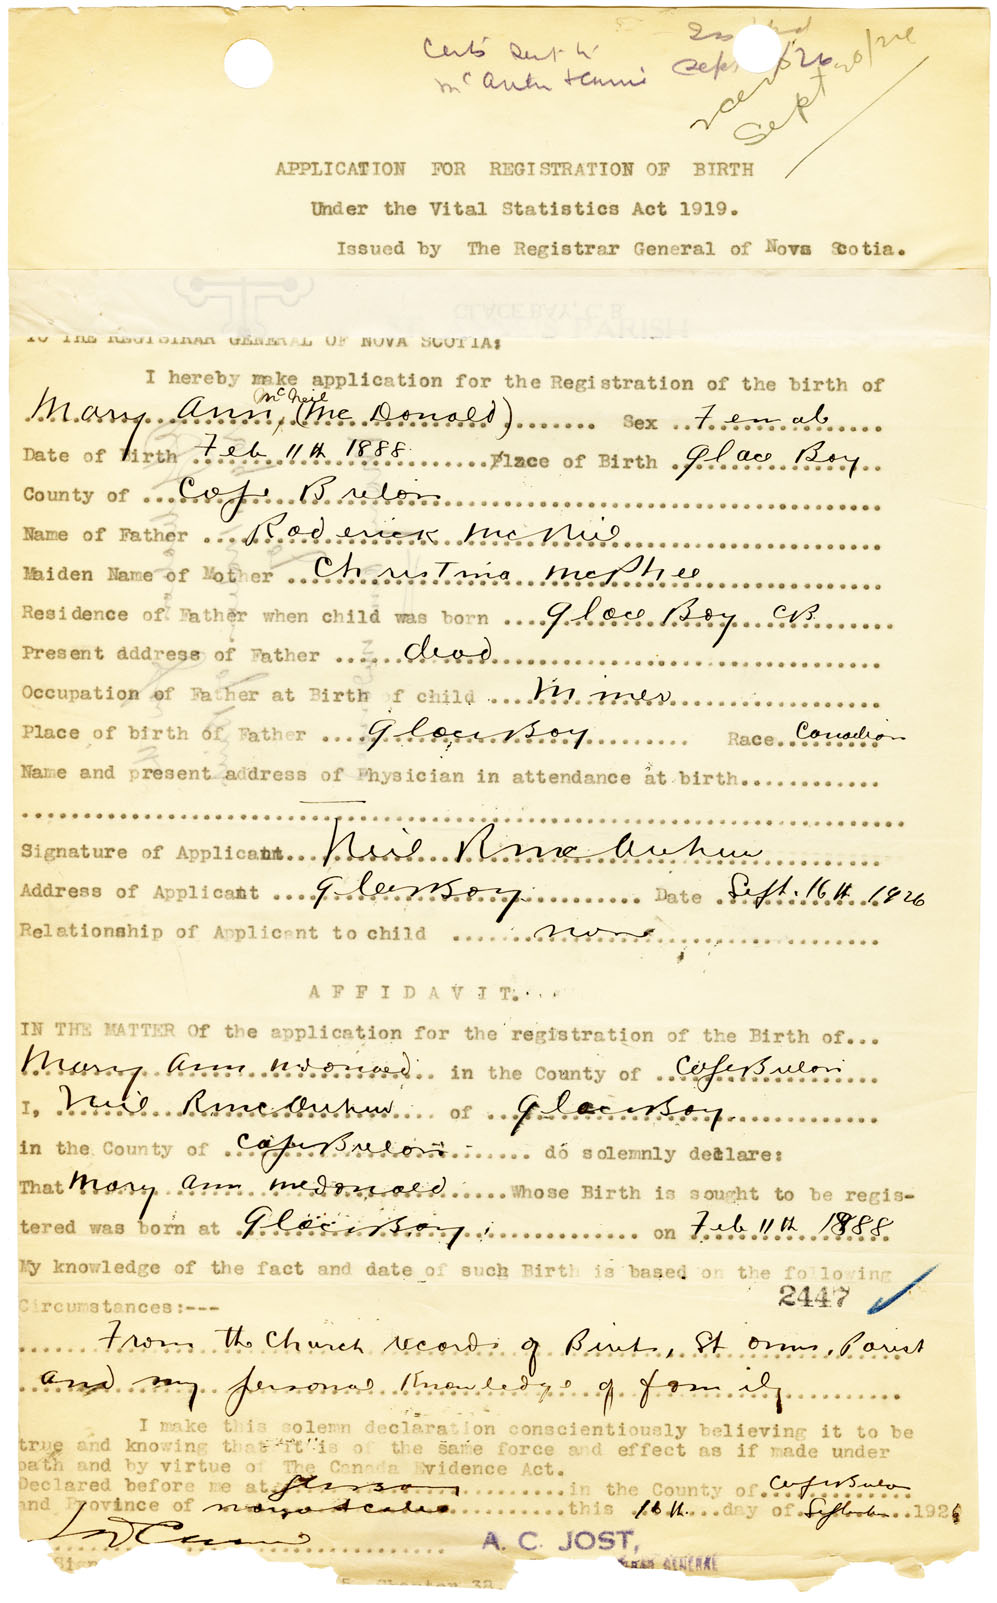 Certs sent to
Mc Arthur & Cunn
Sept /26
Sept 20/26
APPLICATION FOR REGISTRATION OF BIRTH
Under the Vital Statistics Act 1919.
Issued by The Registrar General of Nova Scotia.
GLACE BAY, C. B.
PARISH
TO THE REGISTRAR GENERAL OF NOVA SCOTIA:
I hereby make application for the Registration of the birth of
McNeil
Mary Ann, (Mc Donald) Sex Female
Date of Birth Feb 11th 1888 Place of Birth Glace Bay
County of Cape Breton
Name of Father Roderick McNeil
Maiden Name of Mother Christina McPhee
Residence of Father when child was born Glace Bay CB
Present address of Father dead
Occupation of Father at Birth of child Miner
Place of birth of Father Glace Bay Race Canadian
Name and present address of Physician in attendance at birth
Signature of Applicant Neil R McArthur
Address of Applicant Glace Bay Date Sept. 16th 1926
Relationship of Applicant to child none
AFFIDAVIT.
IN THE MATTER Of the application for the registration of the Birth of...
Mary Ann McDonald in the County of Cape Breton
I, Neil R McArthur of Glace Bay
in the County of Cape Breton do solemnly declare:
That Mary Ann McDonald Whose Birth is sought to be regis-
tered was born at Glace Bay, on Feb 11th 1888
My knowledge of the fact and date of such Birth is based on the following
2447
Circumstances:---
From the Church records of Birth, St Anns, Parish
and my personal Knowledge of family
I make this solemn declaration conscientiously believing it to be
true and knowing that it is of the same force and effect as if made under
oath and by virtue of The Canada Evidence Act.
Declared before me at Glace Bay in the County of Cape Breton
and Province of Nova Scotia this 16th day of September 1926
A. C. JOST,
REGISTRAR GENERAL
Chapter 38